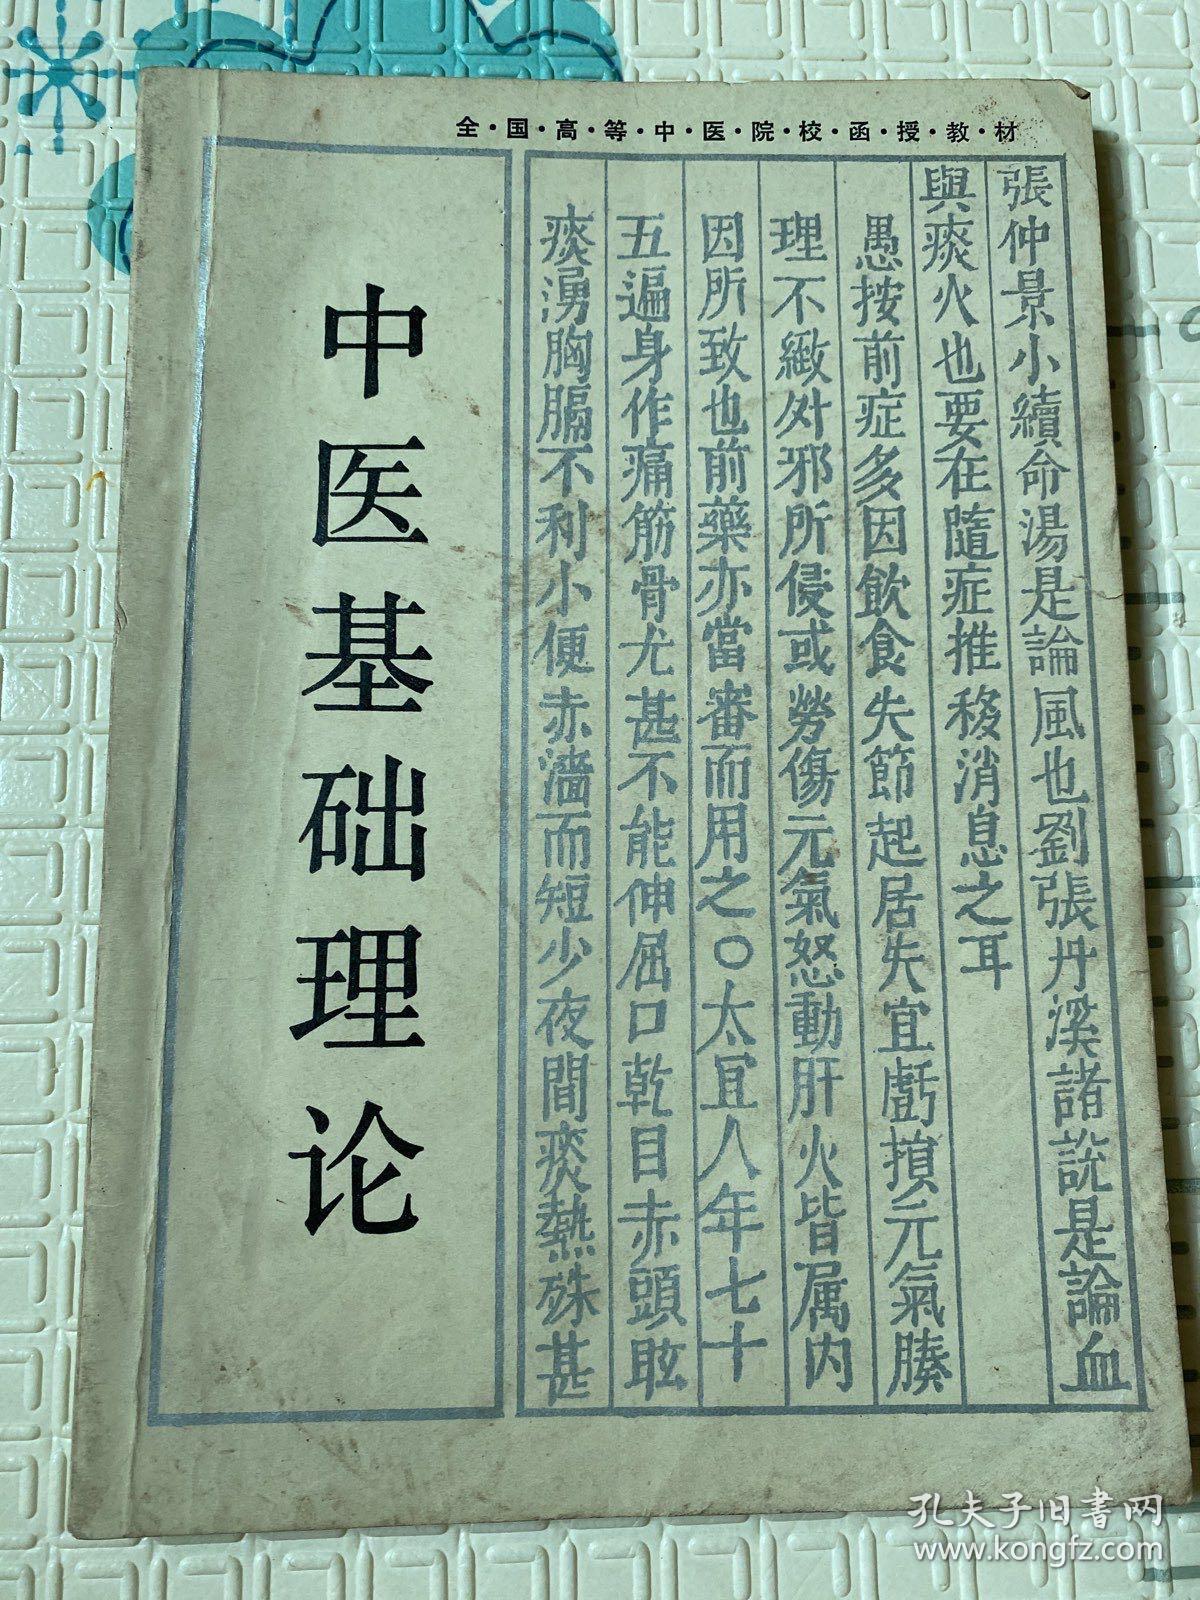 全·国·高·等·中·医·院·校·函·授·教·材
張仲景小續命湯是論風也劉張丹溪諸説是論血
與痰火也要在隨症推移消息之耳
愚按前症多因飲食失節起居失宜虧損元氣腠
理不緻外邪所侵或勞傷元氣怒動肝火皆属内
因所致也前藥亦當審而用之○太宜人年七十
五遍身作痛筋骨尤甚不能伸屈口乾目赤頭眩
痰湧胸膈不利小便赤濇而短少夜間痰熱殊甚
中医基础理论
孔夫子旧书网
www.kongfz.com